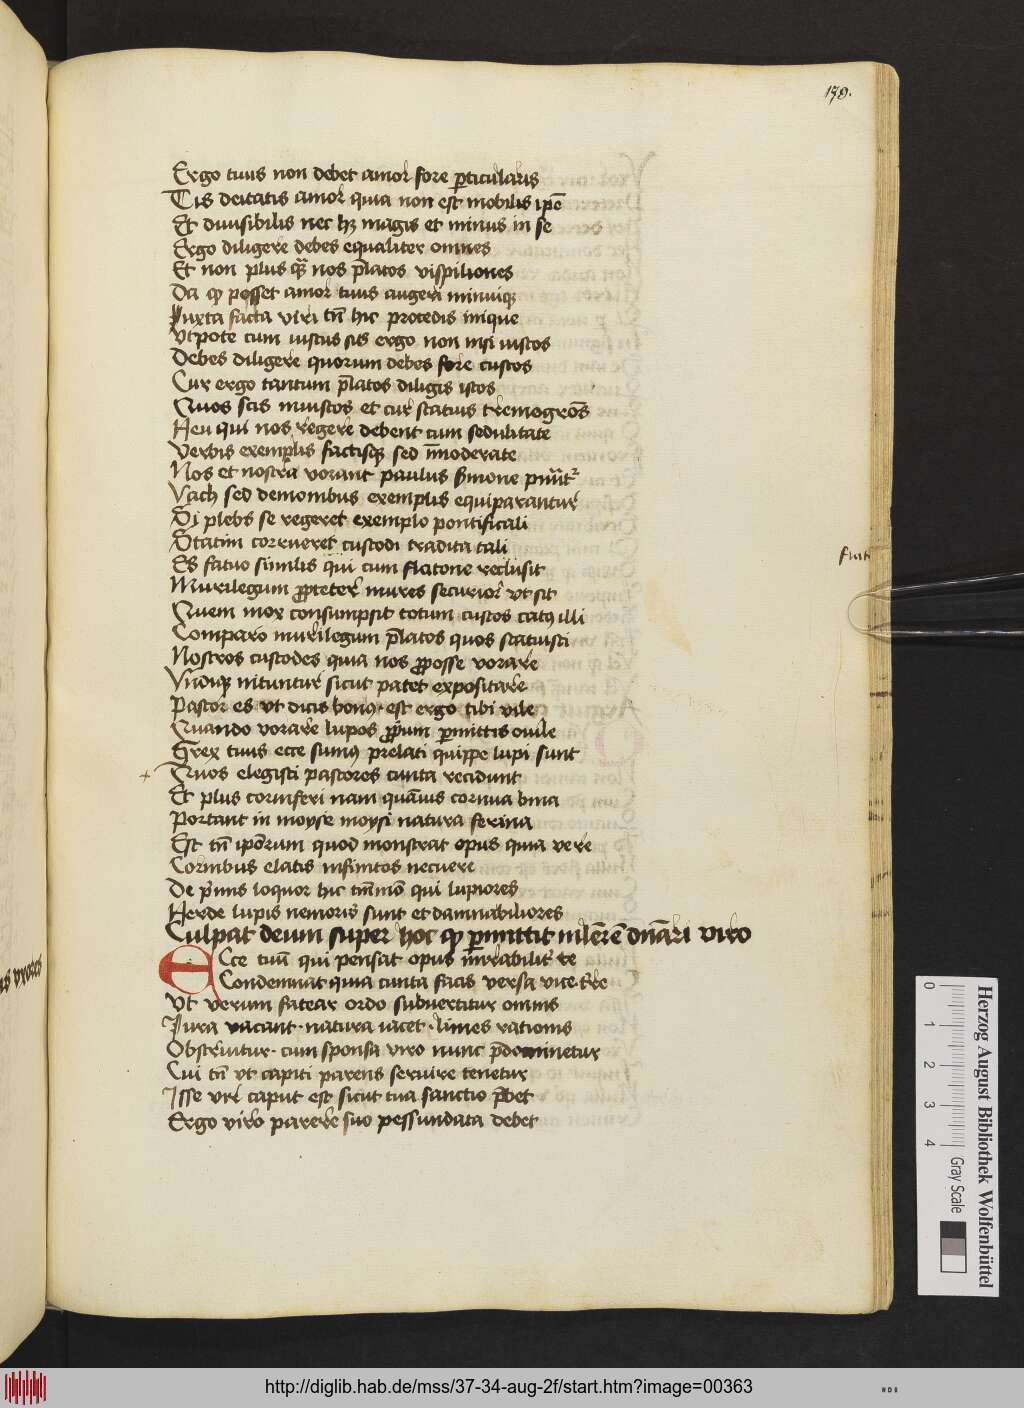 179.
Ergo tuus non debet amor fore perticularis
Tis deitatis amor quia non est mobilis ipē
Et diuisibilis nec hʒ magis et minus in se
Ergo diligere debes equaliter omnes
Et non plus qᷓ nos p̄latos vispiliones
Da ꝙ posset amor tuus augeri minuiqꝫ
Iuxta facta viri tn̄ hic procedis inique
Vtpote cum iustus sis ergo non nisi iustos
Debes diligere quorum debes fore custos
Cur ergo tantum p̄latos diligis istos
Quos scis iniustos et cur statuis
Heu qui nos regere debent cum sedulitate
Verbis exemplis factisqꝫ sed īmoderate
Nos et nostra vorant paulus
Vach sed demonibus exemplis equiparantur
Si plebs se regeret exemplo pontificali
Statim corrueret custodi tradita tali
Es fatuo similis qui cum reclusit
Murilegum ꝓpter mures securior vt sit
Quem mox consumpsit totum custos catꝰ illi
Comparo murilegum p̄latos quos statuisti
Nostros custodes quia nos ꝓposse vorare
Vndiqꝫ nituntur sicut patet expositare
Pastor es vt dicis bonꝰ · est ergo tibi vile
Quando vorare lupos ꝓp̄um ꝑmittis ouile
Grex tuus ecce sumꝰ prelati quippe lupi sunt
Quos elegisti pastores cunta recidunt
Et plus corniferi nam quāuis cornua bina
Portant in moyse moysi natura ferina
Est tn̄ ip̄orum quod monstrat opus quia vere
Cornibus elatis infinitos necuere
De p̄mis loquor hic qui lupiores
Herde lupis nemoris sunt et damnabiliores
Culpat deum super hoc ꝙ ꝑmittit mulierē dn̄ari viro
Ecce tuū qui pensat opus mirabilit᷑ re
Condemnat quia cunta facis versa vice
Vt verum fatear ordo subuertitur omnis
Iura vacant · natura iacet · limes rationis
Obstruitur · cum sponsa viro nunc p̄dominetur
Cui tn̄ vt capiti parens seruire tenetur
Isse viri caput est sicut tua sanctio p̄bet
Ergo viro parere suo pessundata debet
Herzog August Bibliothek Wolfenbüttel
0 1 2 3 4
Gray Scale
http://diglib.hab.de/mss/37-34-aug-2f/start.htm?image=00363